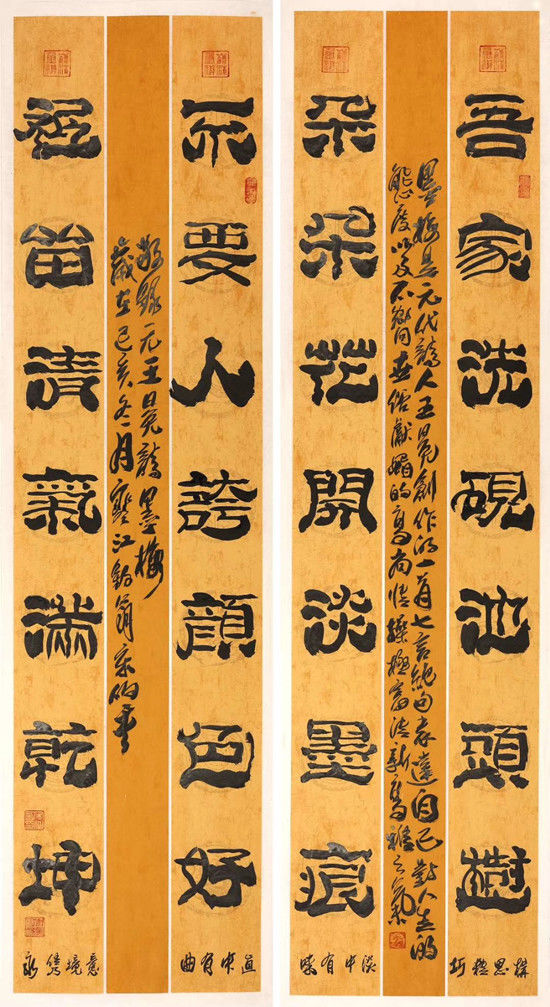 吾家洗硯池頭樹
構思極巧
墨梅是元代詩人王冕創作的一首七言絕句表達自己對人生的
態度以及不嚮世俗獻媚的高尚情操極富清新高雅之氣
朵朵花開淡墨痕
淡中有味
不要人誇顏色好
直中有曲
敬錄元王冕詩墨梅
歲在己亥冬月寒江釣翁宋
祇留清氣滿乾坤
意境雋永